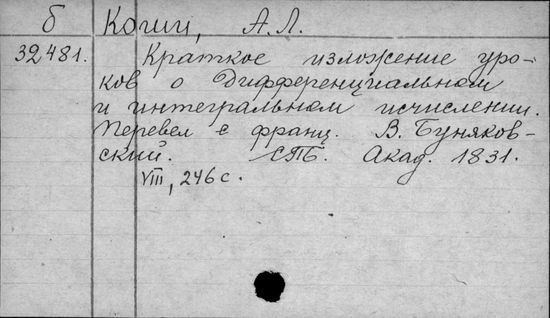 б Коши, А.Л.
32481. Краткое изложение уро-
ков о дифференциальном
и интегральном исчислении.
Перевел с франц. В. Буняков-
ский. СПБ. Акад. 1831.
VIII, 246 с.